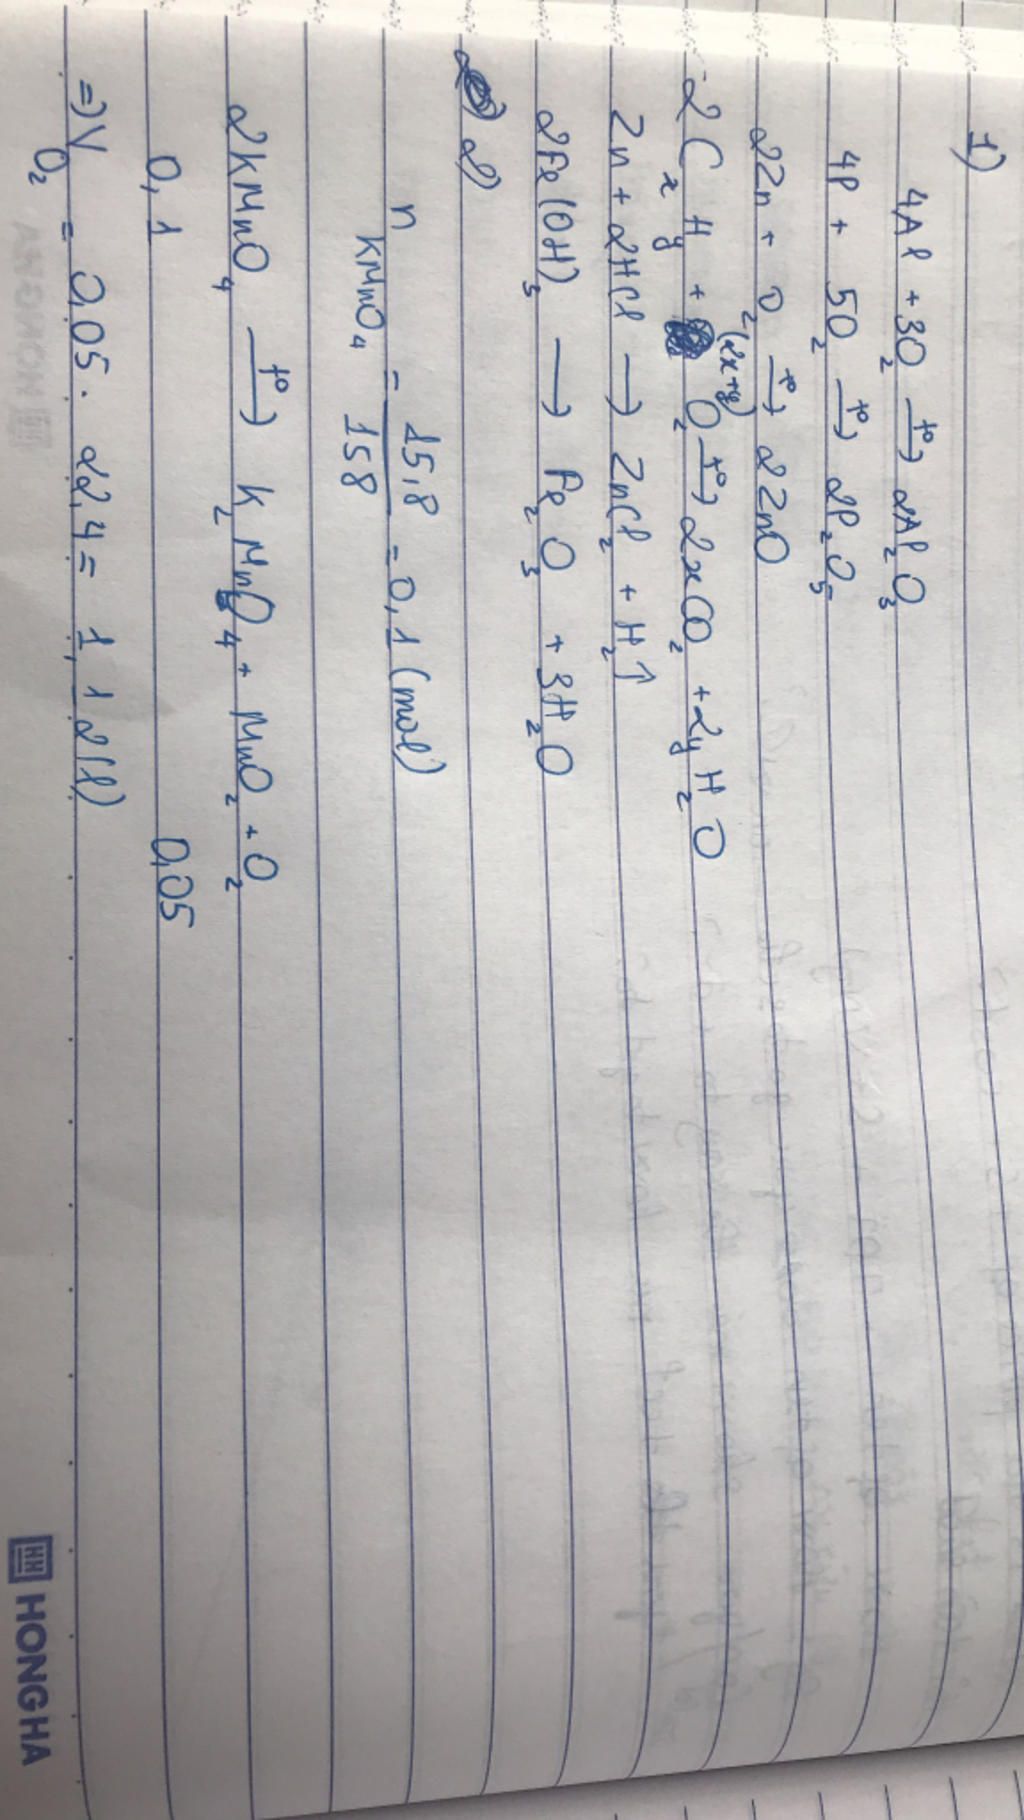 1)
4Al + 3O₂ —t°→ 2Al₂O₃
4P + 5O₂ —t°→ 2P₂O₅
2Zn + O₂ —t°→ 2ZnO
2CxHy + (2x+y) O₂ —t°→ 2xCO₂ + 2yH₂O
Zn + 2HCl → ZnCl₂ + H₂↑
2Fe(OH)₃ → Fe₂O₃ + 3H₂O
2)
n KMnO₄ = 15,8 / 158 = 0,1 (mol)
2KMnO₄ —t°→ K₂MnO₄ + MnO₂ + O₂
0,1 0,05
=> V O₂ = 0,05 . 22,4 = 1,12 (l)
HONG HA